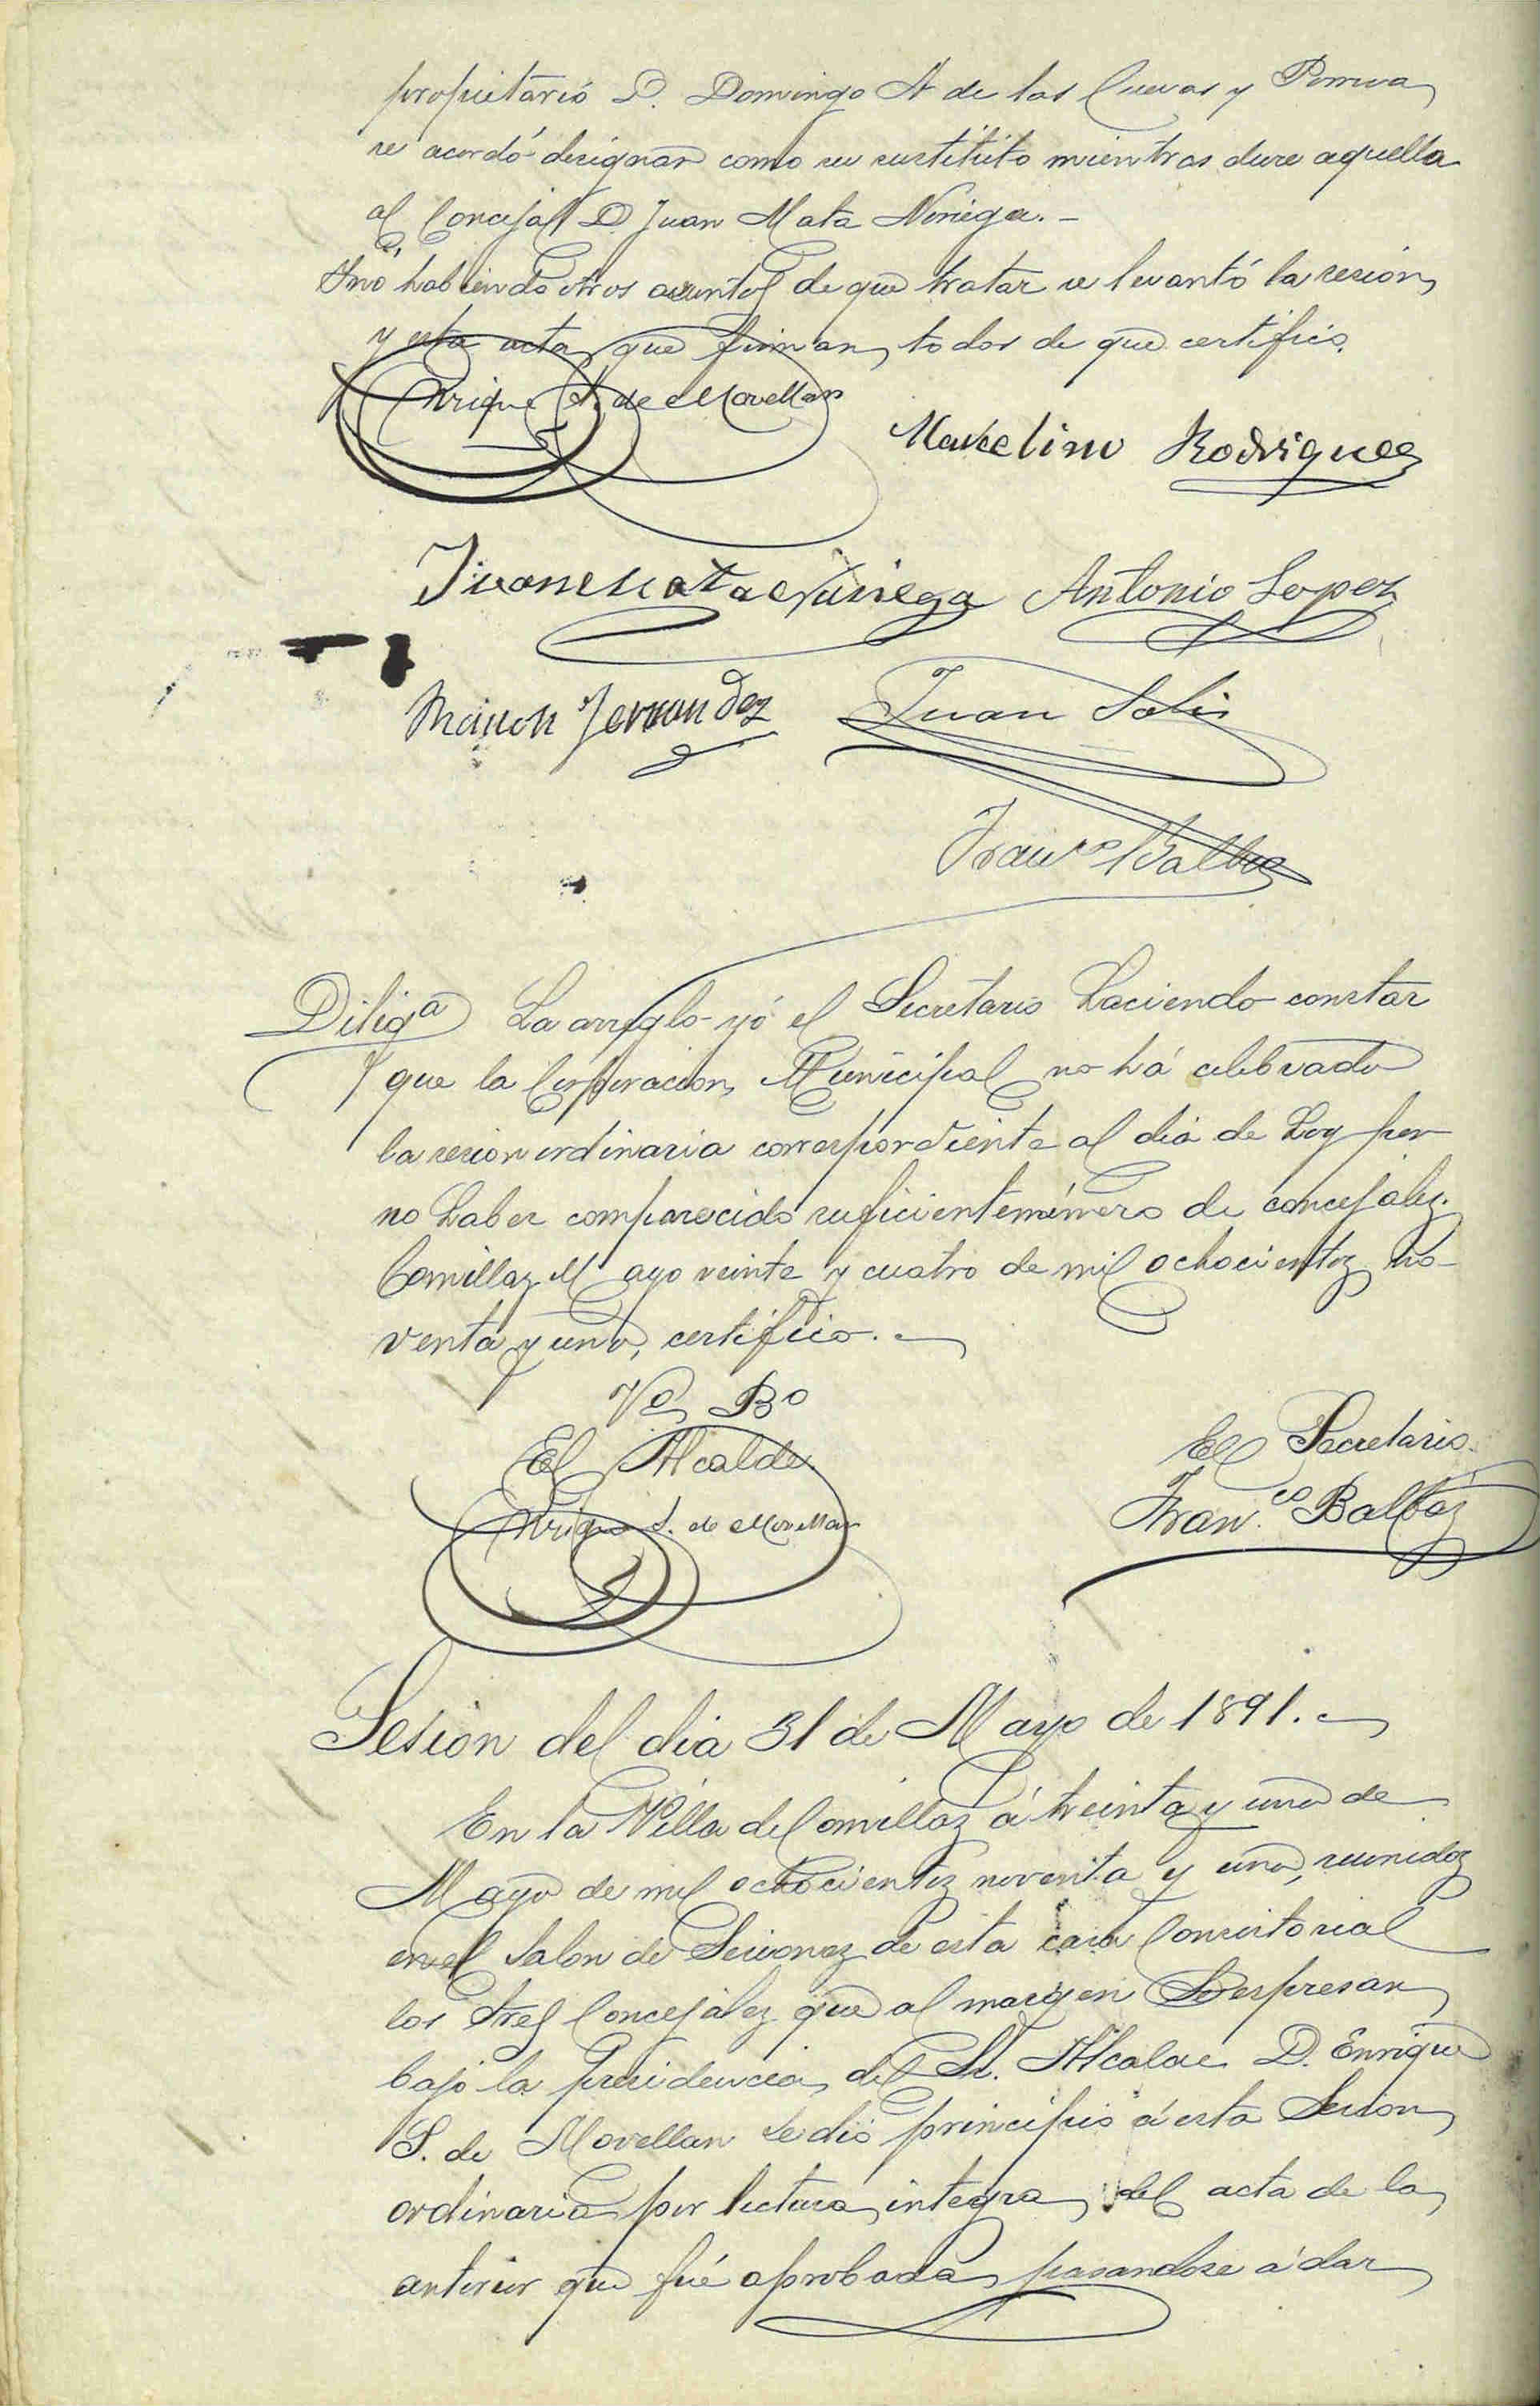 propietario D. Domingo A de las Cuevas y Porrua
se acordó designar como su sustituto mientras dure aquella
al Concejal D. Juan Mata Noriega. -
Y no habiendo otros asuntos de que tratar se levantó la sesión
y esta acta que firman todos de que certifico.
Enrique S. de Movellan
Marcelino Rodriguez
Juan Mata Noriega Antonio Lopez
Ramon Fernandez Juan Solis
Franco Balbas
Diliga La arreglo yó el Secretario haciendo constar
que la Corporacion Municipal no há celebrado
la sesion ordinaria correspondiente al dia de hoy por
no haber comparecido suficiente número de concejales.
Comillas Mayo veinte y cuatro de mil ochocientos no-
venta y uno, certifico.
Vo Bo
El Alcalde
El Secretario.
Enrique S. de Movellan
Franco Balbas
Sesion del dia 31 de Mayo de 1891.
En la Villa de Comillas á treinta y uno de
Mayo de mil ochocientos noventa y uno, reunidos
en el Salon de Sesiones de esta casa Consistorial
los Sres Concejales que al margen se espresan
bajo la presidencia del Sr. Alcalde D. Enrique
S. de Movellan se dió principio á esta Sesion
ordinaria por lectura integra del acta de la
anterior que fué aprobada, pasandose á dar